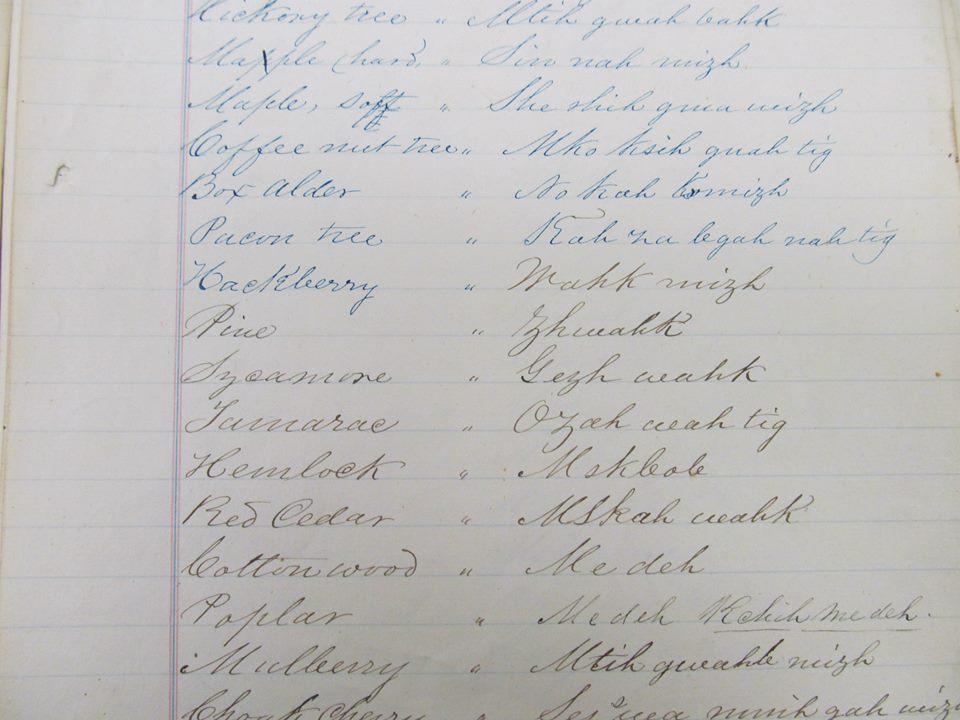 Hickory tree " Mtih gwah bahk
Mapple (hard) " Sin nah mizh
Maple, soft " She shih gma mizh
Coffee nut tree " Mko ksih guah tig
Box Alder " No kah mizh
Pacon tree " Kah za begah nah tig
Hackberry " Wahk mizh
Pine " Zhwahk
Sycamore " Gezh wahk
Tamarac " Ozah wah tig
Hemlock " Mskbob
Red Cedar " MSkah wahk
Cotton wood " Me deh
Poplar " Medeh Kchih me deh.
Mulberry " Mtih gwahb mizh
Choak Cherry "